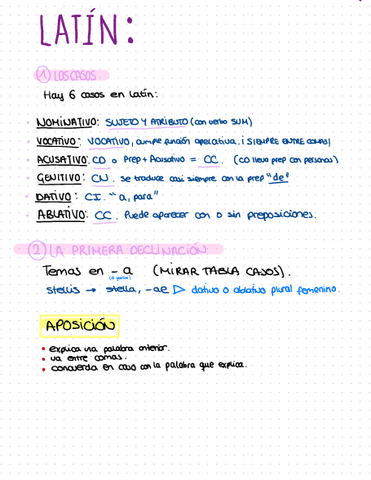 LATÍN:
① LOS CASOS
Hay 6 casos en latín:
• NOMINATIVO: SUJETO Y ATRIBUTO (con verbo SUM)
• VOCATIVO: VOCATIVO, cumple función apelativa. ¡SIEMPRE ENTRE COMAS!
• ACUSATIVO: CD o Prep + Acusativo = CC. (CD lleva prep con personas)
• GENITIVO: CN. se traduce casi siempre con la prep "de"
• DATIVO: CI. "a, para"
• ABLATIVO: CC. Puede aparecer con o sin preposiciones.
② LA PRIMERA DECLINACIÓN
Temas en -a (MIRAR TABLA CASOS).
stellis → stella, -ae ▷ dativo o ablativo plural femenino.
APOSICIÓN
• explica una palabra anterior.
• va entre comas.
• concuerda en caso con la palabra que explica.